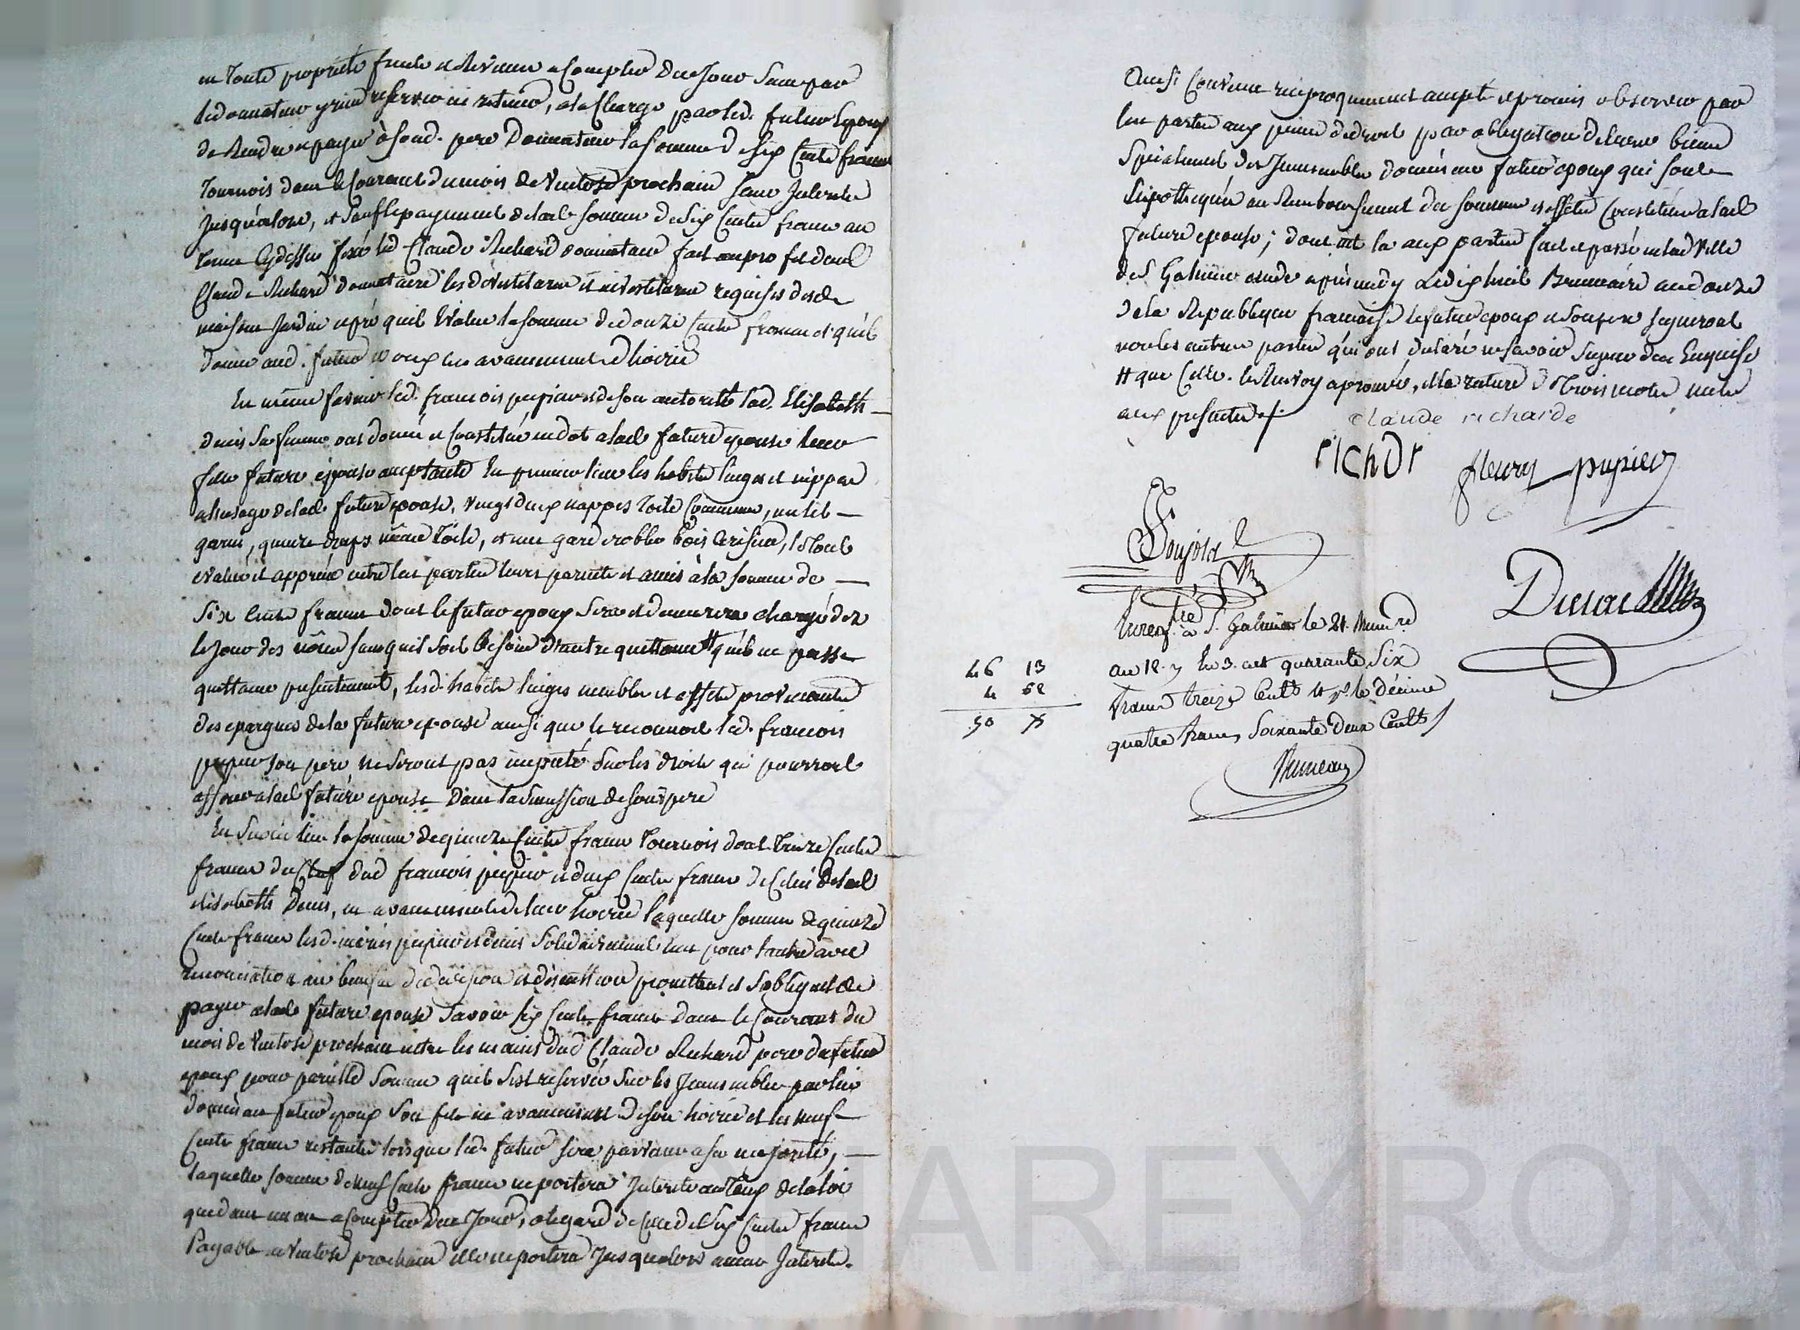 en toute propriété fruits et revenus a compter de ce jour sans par
led donnateur y rien reserver ni retenir, a la charge par led. futur epoux
de rendre et payer à sond. pere Donnateur la somme de six Cents francs
Tournois dans le courant du mois de Ventose prochain sans Interets
jusqu'alors, et sauf le payement de lade somme de six Cents francs au
terme cy dessus fixé led Claude Richard donnateur fait au profit dud
Claude Richard donnataire les devestitures et investitures requises desde
maison Jardin et pré qu'il evalue la somme de douze Cents francs et qu'il
donne aud. futur epoux en avancement d'hoirie
En même faveur led. françois pupier et de son autorité lad. Elisabeth
denis sa femme ont donné et Constitué en dot a lade future epouse leur
fille future epouse acceptante En premier lieu les habits linges et nippes
a l'usage de lade future epouse, vingt deux nappes toile Commune, un lit
garni, quatre draps même Toile, et une garderobbe bois Cerisier, le tout
evalué et apprécié entre les parties leurs parents et amis à la somme de
Six Cents francs dont le futur epoux sera et demeurera chargé dez
le jour des nôces sans qu'il soit besoin d'autre quittance # qu'il ne passe
quittance presentement, lesd. habits linges meubles et effets provenants
des epargnes de la future epouse ainsi que le reconnoit led. francois
pupier son pere ne seront pas imputés sur les droits qui pourroit
afferer a lade future epouse Dans la succession de son pere
En Second lieu la somme de quinze Cents francs tournois dont treize Cents
francs du Chef dud francois pupier et deux Cents francs de Celui de lade
elisabeth Denis, en avancement de leur hoirie laquelle somme de quinze
Cents francs lesd. mariés pupier et denis solidairement l'un pour l'autre avec
renonciation au benefice de division et discussion promettent et s'obligent de
payer a lade future epouse savoir six Cents francs dans le Courant du
mois de Ventose prochain entre les mains dud Claude Richard pere du futur
epoux pour pareille somme qu'il s'est reservée sur les Immeubles par lui
donnés au futur epoux son fils en avancement de son hoirie et les neuf
Cents francs restants lorsque led. futur sera parvenu a sa majorité,
laquelle somme de neuf Cents francs ne portera Interets au taux de la loi
que dans un an a Compter de ce Jour, a l'egard de Celle de Six Cents francs
Payable en Ventose prochain elle ne portera Jusqu'alors aucun Interets.
Ainsi Convenu reciproquement accepté et promis observer par
les parties aux peines de droit par obligation de leurs biens
Specialement des Immeubles donnés au futur epoux qui sont
hipothequés au Remboursement des sommes et effets Constitués a lade
future epouse; dont acte aux parties fait et passé en lad Ville
de St Galmier etude après midy Le dix huit Brumaire an douze
de la Republique francaise le futur epoux et son pere signeront
non les autres parties qui ont declaré ne savoir signer de ce Enquises
# que Celle. le Renvoy aprouvé, et la rature de Trois mots nuls
aux presentes
claude richarde
richor fleury pupier
Duroc
Enregtré à St Galmier le 21. Brumre
46 13 an 12. f° En 3. reçu quarante Six
4 62 francs treize Centes # pr le décime
50 75 quatre francs Soixante deux Centes
CHAREYRON